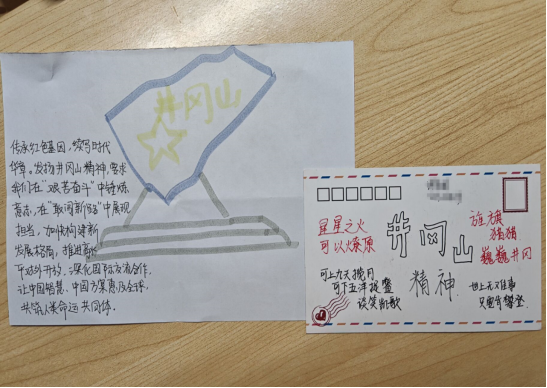 井冈山
传承红色基因,续写时代
华章。发扬井冈山精神,要求
我们在“艰苦奋斗”中锤炼
意志,在“敢闯新路”中展现
担当,加快构建新
发展格局,推进高水
平对外开放,深化国际交流合作,
让中国智慧、中国方案惠及全球,
共筑人类命运共同体.
星星之火
可以燎原
井冈山
精神
旌旗
猎猎
巍巍井冈
可上九天揽月
可下五洋捉鳖
谈笑凯歌
世上无难事
只要肯攀登